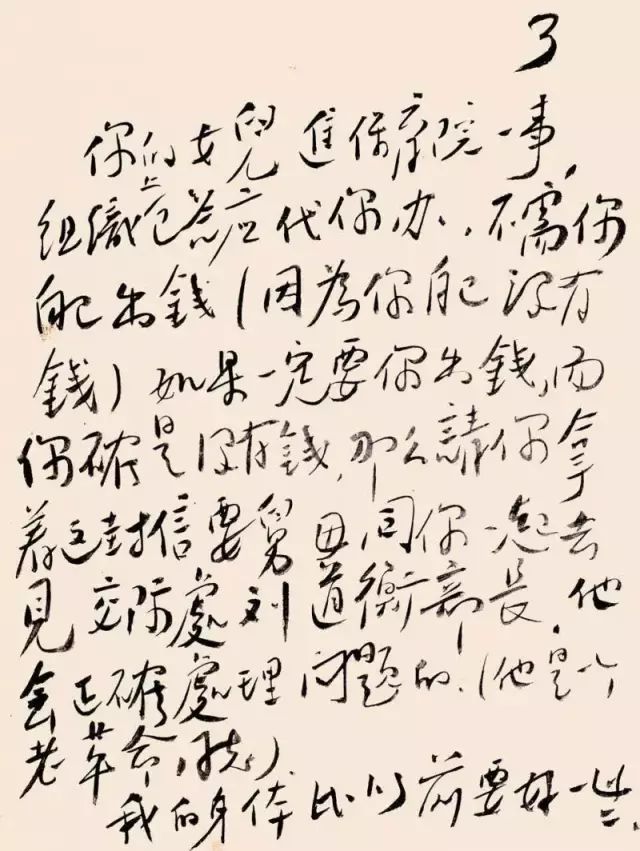 3
你的女兒進保育院一事,
組織上應代你办,不需你
自己出錢(因為你自己没有
錢)如果一定要你出錢,而
你確是没有錢,那么請你拿
着這封信要舅母同你一起去
見交际處刘道衡部長,他
会正確處理问題的.(他是个
老革命,)
我的身体比以前要好一些.